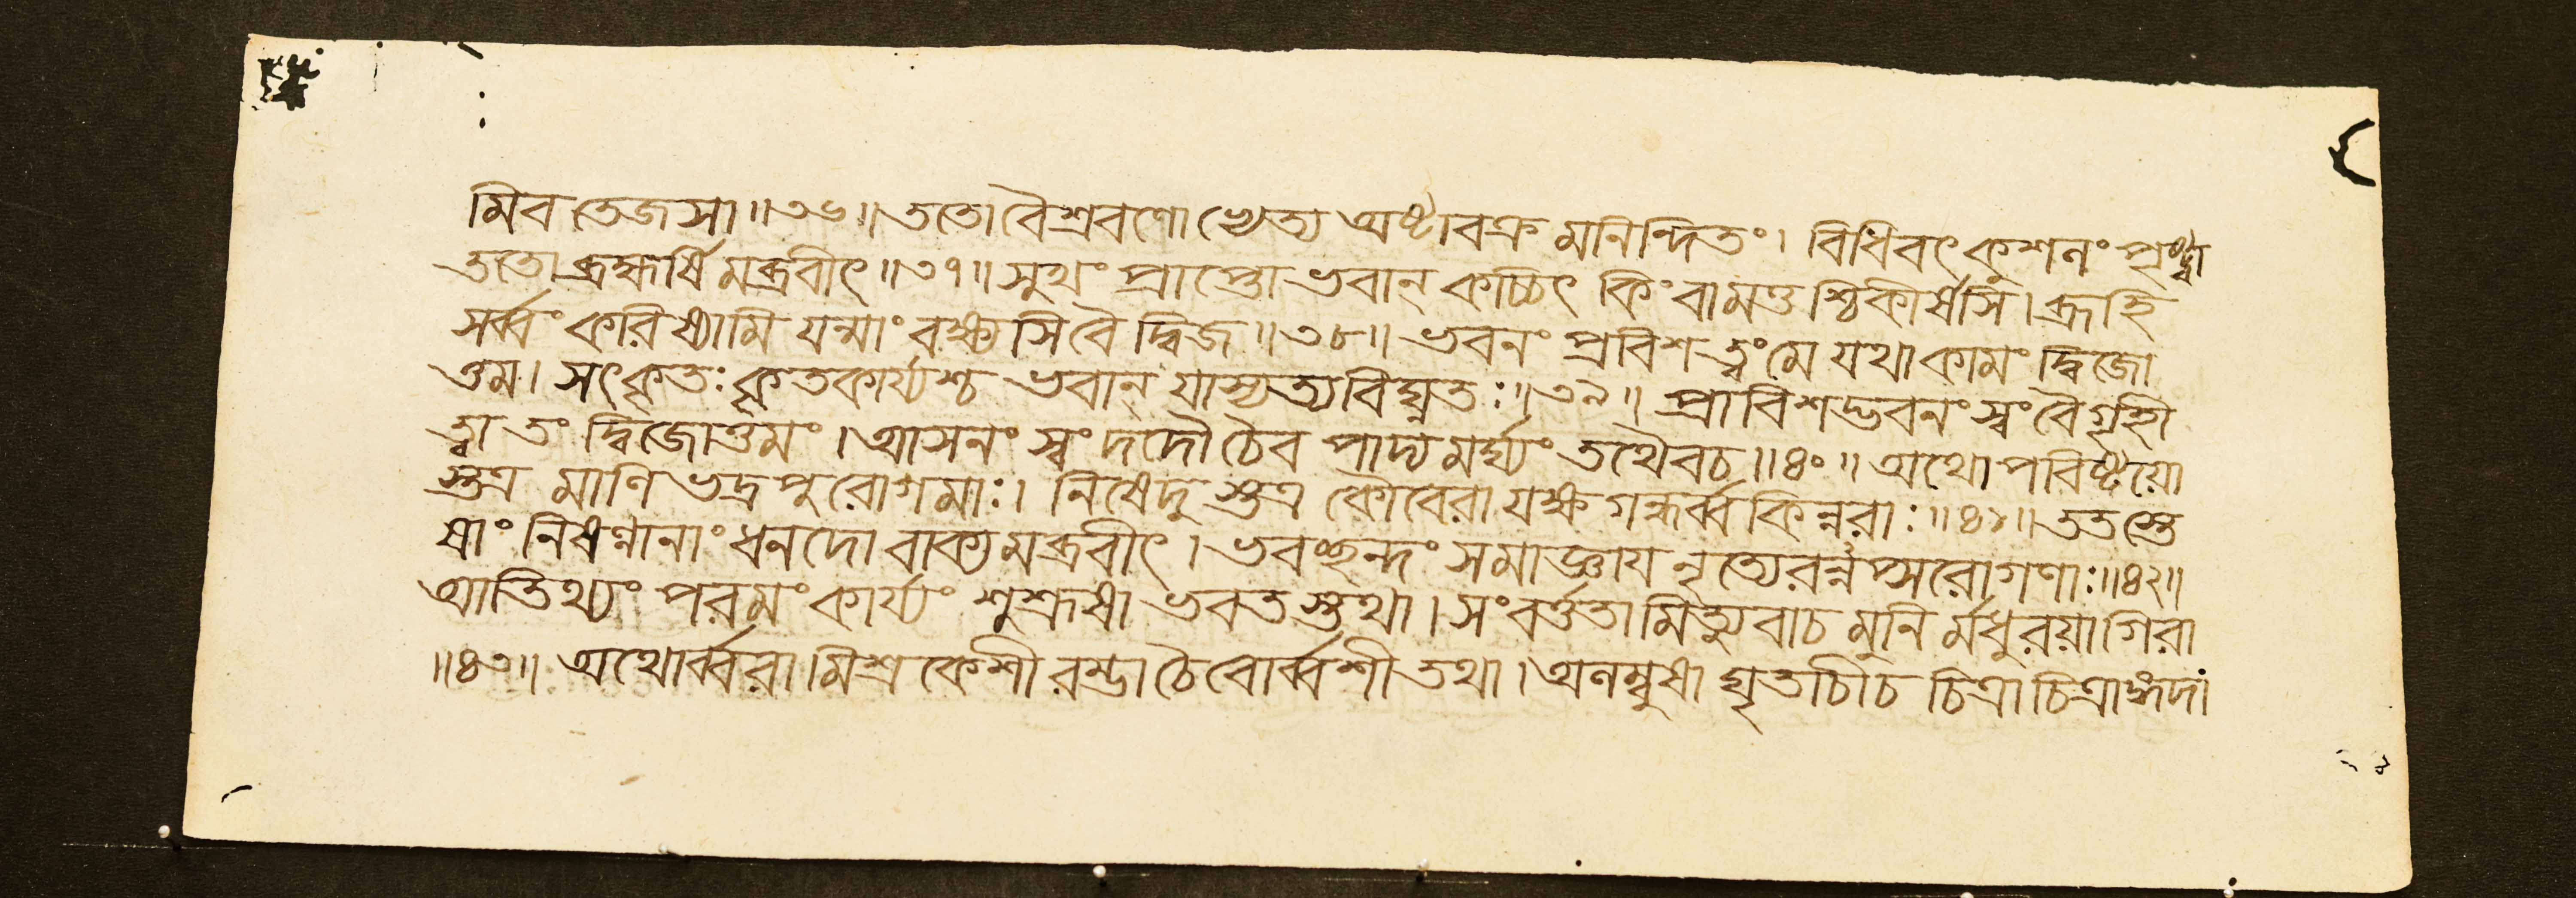 মিব তেজসা॥৩৬॥ ততো বৈশ্রবণো ভ্যেত্য অষ্টাবক্র মনিন্দিতং। বিধিবৎ কুশলং পৃষ্ট্বা
ততো ব্রহ্মর্ষি মব্রবীৎ॥৩৭॥ সুখং প্রাপ্তো ভবান্ কচ্চিৎ কিংবামত্তশ্চিকীর্ষসি। ব্রূহি
সর্ব্বং করিষ্যামি যন্মাং বক্ষ্যসি বৈ দ্বিজ॥৩৮॥ ভবনং প্রবিশ ত্বং মে যথাকামং দ্বিজো
ত্তম। সৎকৃতঃ কৃতকার্য্যশ্চ ভবান্ যাস্যত্যবিঘ্নতঃ॥৩৯॥ প্রাবিশদ্ভবনং স্বং বৈ গৃহী
ত্বা তং দ্বিজোত্তমং। আসনং স্বং দদৌ চৈব পাদ্যমর্ঘ্যং তথৈবচ॥৪০॥ অথোপবিষ্টয়ো
স্তত্র মাণিভদ্রপুরোগমাঃ। নিষেদু স্তত্র কৌবেরা যক্ষগন্ধর্ব্বকিন্নরাঃ॥৪১॥ ততস্তে
ষাং নিষণ্নানাং ধনদো বাক্যমব্রবীৎ। ভবচ্ছন্দং সমাজ্ঞায নৃত্যেরন্নপ্সরোগণাঃ॥৪২॥
আতিথ্যং পরমং কার্য্যং শুশ্রূষা ভবতস্তথা। সংবর্ত্ততামিত্যুবাচ মুনি র্মধুরয়া গিরা
॥৪৩॥ অথোর্ব্বরা মিশ্রকেশী রম্ভা চৈবোর্ব্বশী তথা। অলম্বুষা ঘৃতাচী চ চিত্রা চিত্রাঙ্গদা